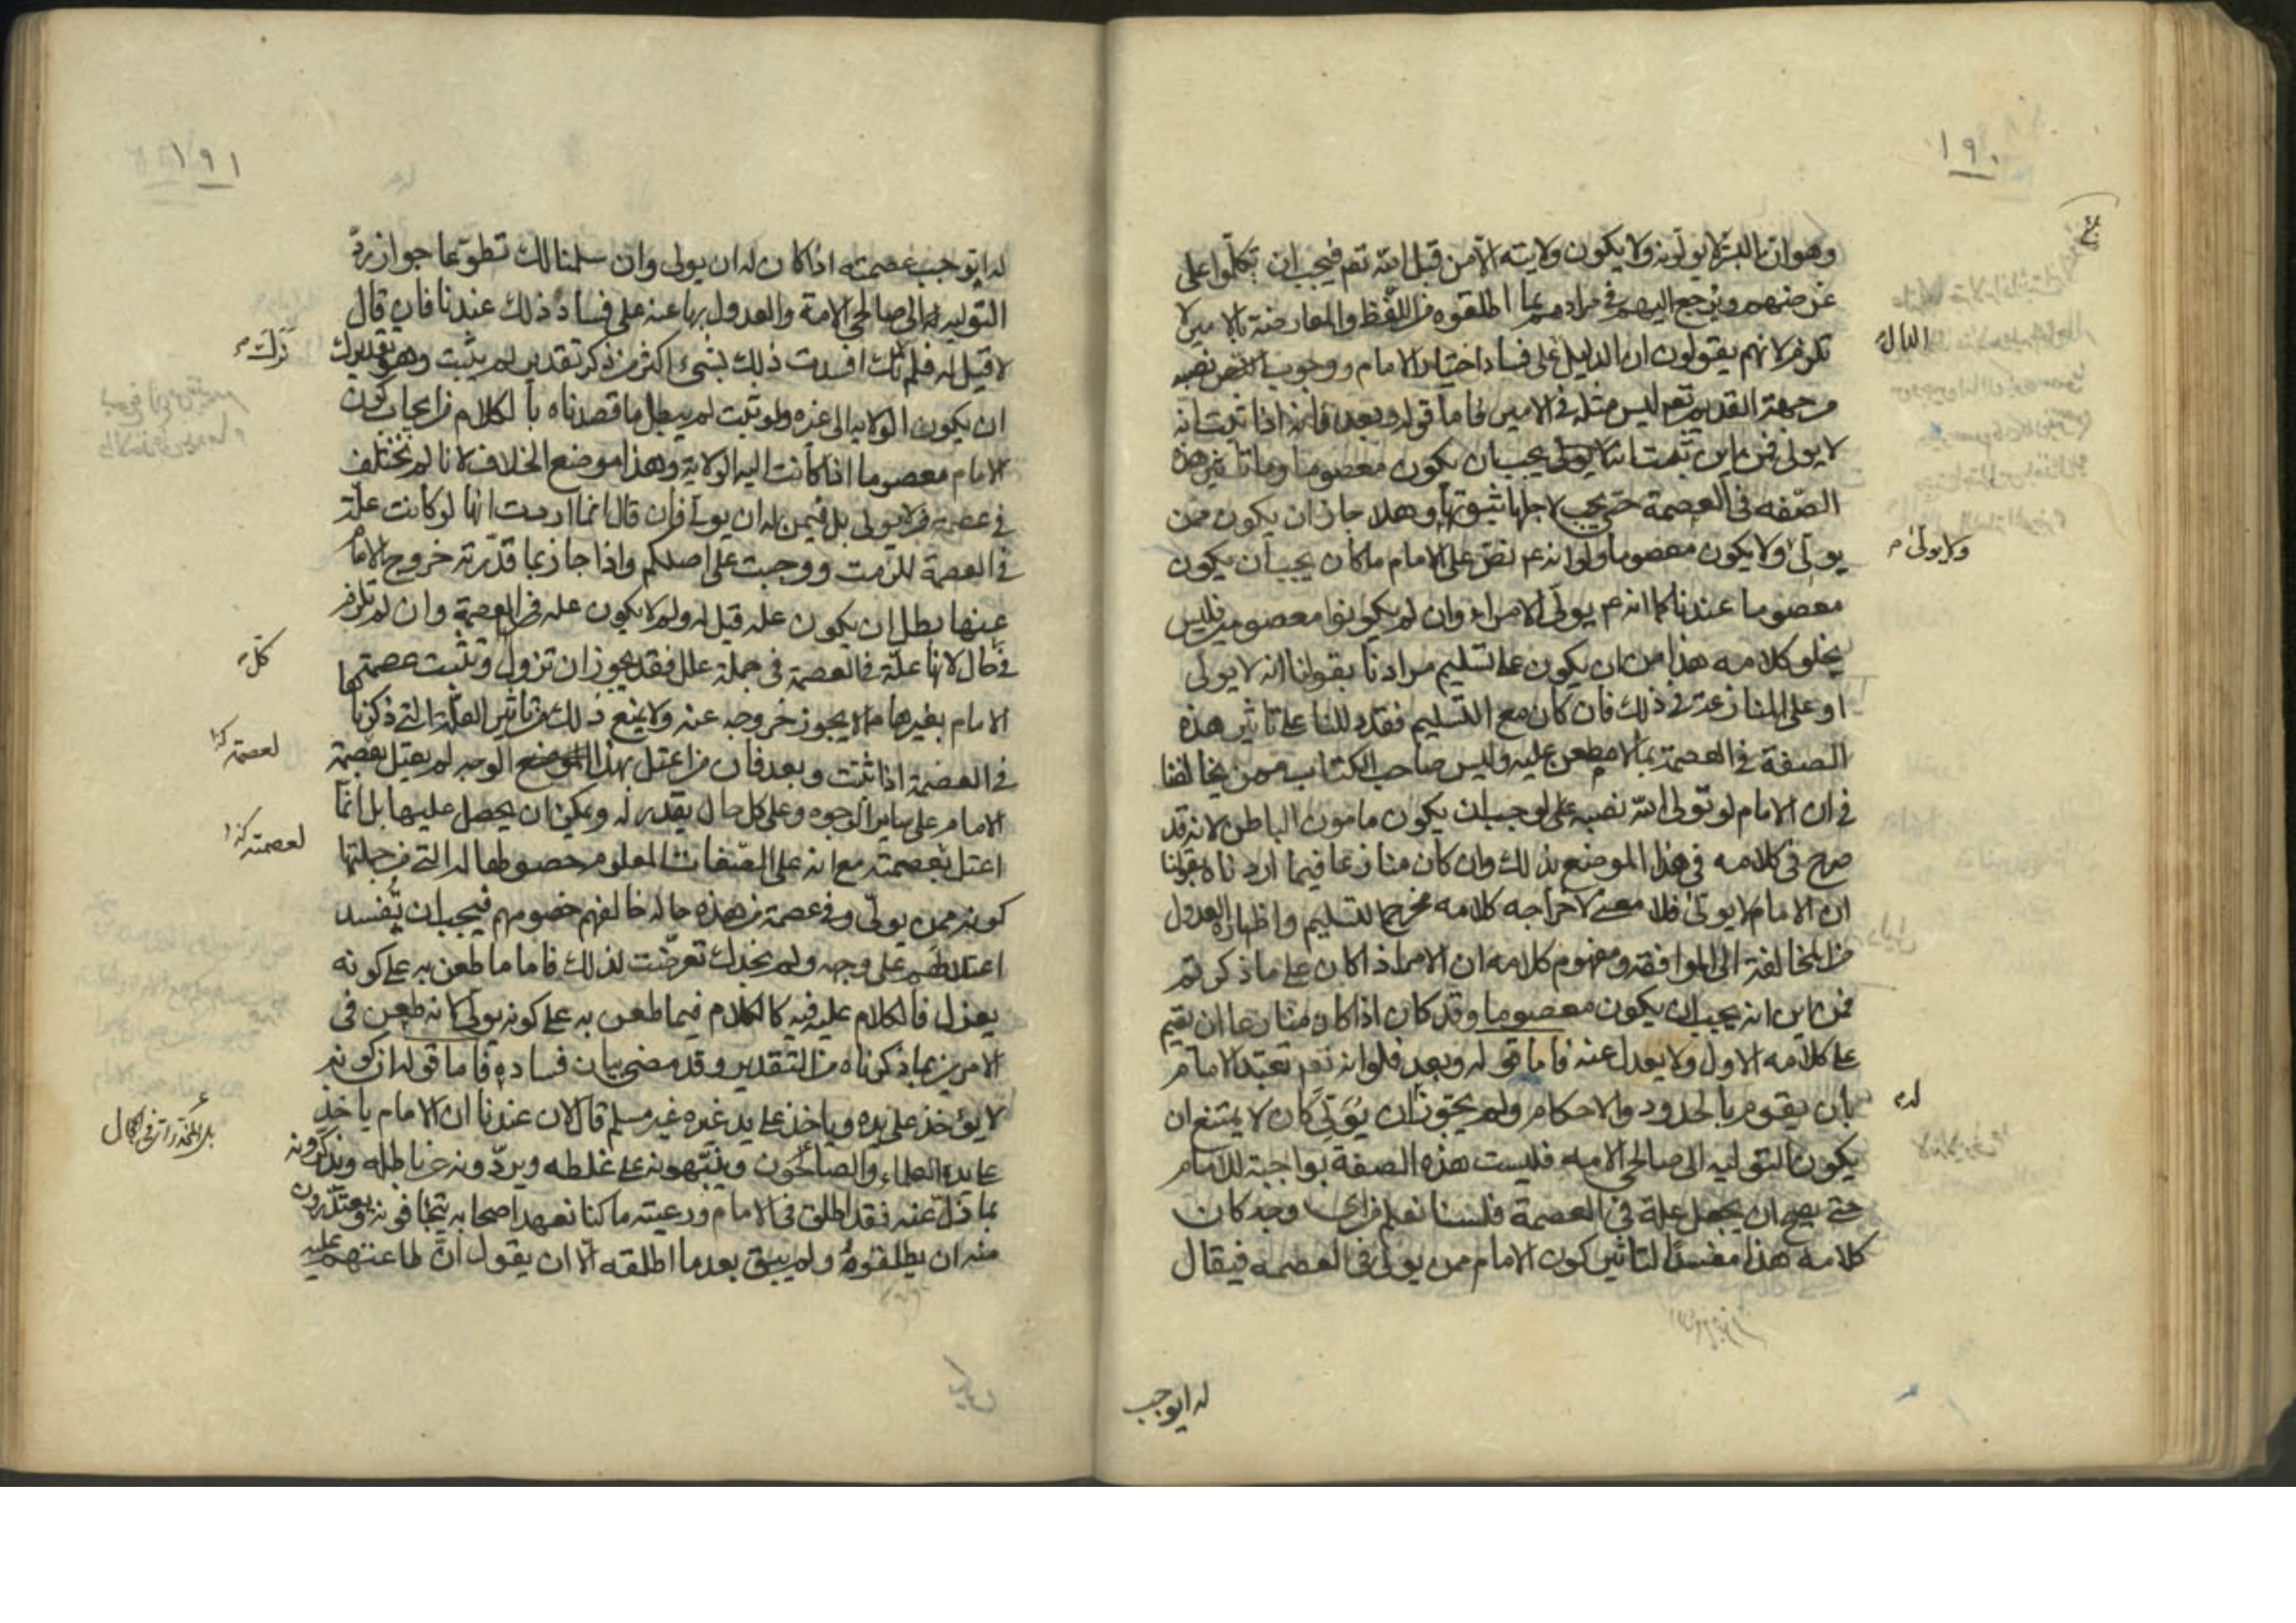 ١٩٠
وهو ان البشر لا يولونه ولا يكون ولايته الا من قبل الله تعم فيجب ان تكلموا على
غرضهم ويرجع اليهم في مرادهم بما اطلقوه من اللفظ والمعارضة بالامير لا
تلزم لانهم يقولون ان الدليل على فساد اختيار الامام ووجوب النص
من جهة القديم تعم ليس مثله في الامير فاما قوله وبعد فانه اذا ثبت انه
لا يولى فمن اين ثبت انه يجب ان يكون معصوما وما تأثير هذه
الصفه في العصمة حتى يجب لاجلها ثبوتها وهلا جاز ان يكون ممن
يولى ولا يكون معصوما ولو انه عم نص على الامام ما كان يجب ان يكون
ولا يولى م
معصوما عندنا كما انه عم يولى الامراء وان لم يكونوا معصومين فليس
يخلو كلامه هذا من ان يكون على تسليم مرادنا بقولنا انه لا يولى
او على المنازعة في ذلك فان كان مع التسليم فقد دللنا على تاثير هذه
الصفة في العصمة بما لا مطعن عليه وليس صاحب الكتاب ممن يخالفنا
في ان الامام لو تولى الله نصبه على لوجب ان يكون مامون الباطن لانه قد
صرح في كلامه في هذا الموضع بذلك وان كان منازعا فيما اردناه بقولنا
ان الامام لا يولى فلا معنى لاخراجه كلامه مخرج التسليم واظهاره العدول
من المخالفة الى الموافقة ومفهوم كلامه ان الامام اذا كان على ما ذكرتم
فمن اين انه يجب ان يكون معصوما وقد كان اذا كان منازعا ان يقيم
على كلامه الاول ولا يعدل عنه فاما قوله وبعد فلو انه تعم تعبد الامام
بان يقوم بالحدود والاحكام ولم يجوز ان يولى كان لا يمتنع ان
له
يكون التوليه الى صالحي الامه فليست هذه الصفة بواجبة للامام
حتى يصح ان يجعل علة في العصمة فلسنا نعلم من اي وجه كان
كلامه هذا مفسدا لتاثير كون الامام ممن يولى في العصمه فيقال
له ايوجب
١٩١
له ايوجب عصمته اذا كان له ان يولى وان سلمنا لك تطوعا جواز رد
التوليه الى صالحي الامة والعدول بها عنه على فساد ذلك عندنا فان قال
لا قيل له فلم تك افسدت ذلك بشيء اكثر من ذكر تقدير لم يثبت وهو تقديرك
ان يكون الولايه الى غيره ولو ثبت لم يبطل ما قصدناه بالكلام من ايجاب كون
الامام معصوما اذا كانت اليه الولاية وهذا موضع الخلاف لانا لم نختلف
في عصمة من لا يولى بل فيمن له ان يولى فان قال انما اردت انها لو كانت علة
في العصمة للزمت ووجبت على اصلكم واذا جاز بما قدرته خروج الامام
عنها بطل ان يكون علة قيل له ولم لا يكون علة في العصمة وان لم تلزم
في كل حال لانها علة في العصمة في جملة علل فقد يجوز ان تزول وتثبت عصمة
الامام بغيرها مما لا يجوز خروجه عنه ولا يمنع ذلك من تاثير العلة التي ذكرنا
في العصمة اذا ثبتت وبعد فان من اعتل بهذا الوجه لم يعتل بعصمة
لعصمة
الامام على ساير الوجوه وعلى كل حال يقدر له ويمكن ان يحصل عليها بل انما
اعتل بعصمته مع انه على الصفات المعلوم حصولها له التي من جملتها
لعصمته
كونه ممن يولى وفي عصمة من هذه حاله خالفهم خصومهم فيجب ان تفسد
اعتلالهم على وجهه ولم نجدك تعرضت لذلك فاما ما طعن به على كونه
يعزل فالكلام عليه فيه كالكلام فيما طعن به على كونه يولى لانه طعن في
الامرين بما ذكرناه من التقدير وقد مضى بيان فساده فاما قوله ان كونه
لا يؤخذ على يده وياخذ على يد غيره غير مسلم قال لان عندنا ان الامام ياخذ
على يده العلماء والصالحون وينبهونه على غلطه ويردونه عن باطله ويذكرونه
بما زل عنه فقد اطلق في الامام ورعيته ما كنا نعهد اصحابه يتجافونه ويعتذرون
منه ان يطلقوه ولم يبق بعد ما اطلقه الا ان يقول ان طاعتهم عليه